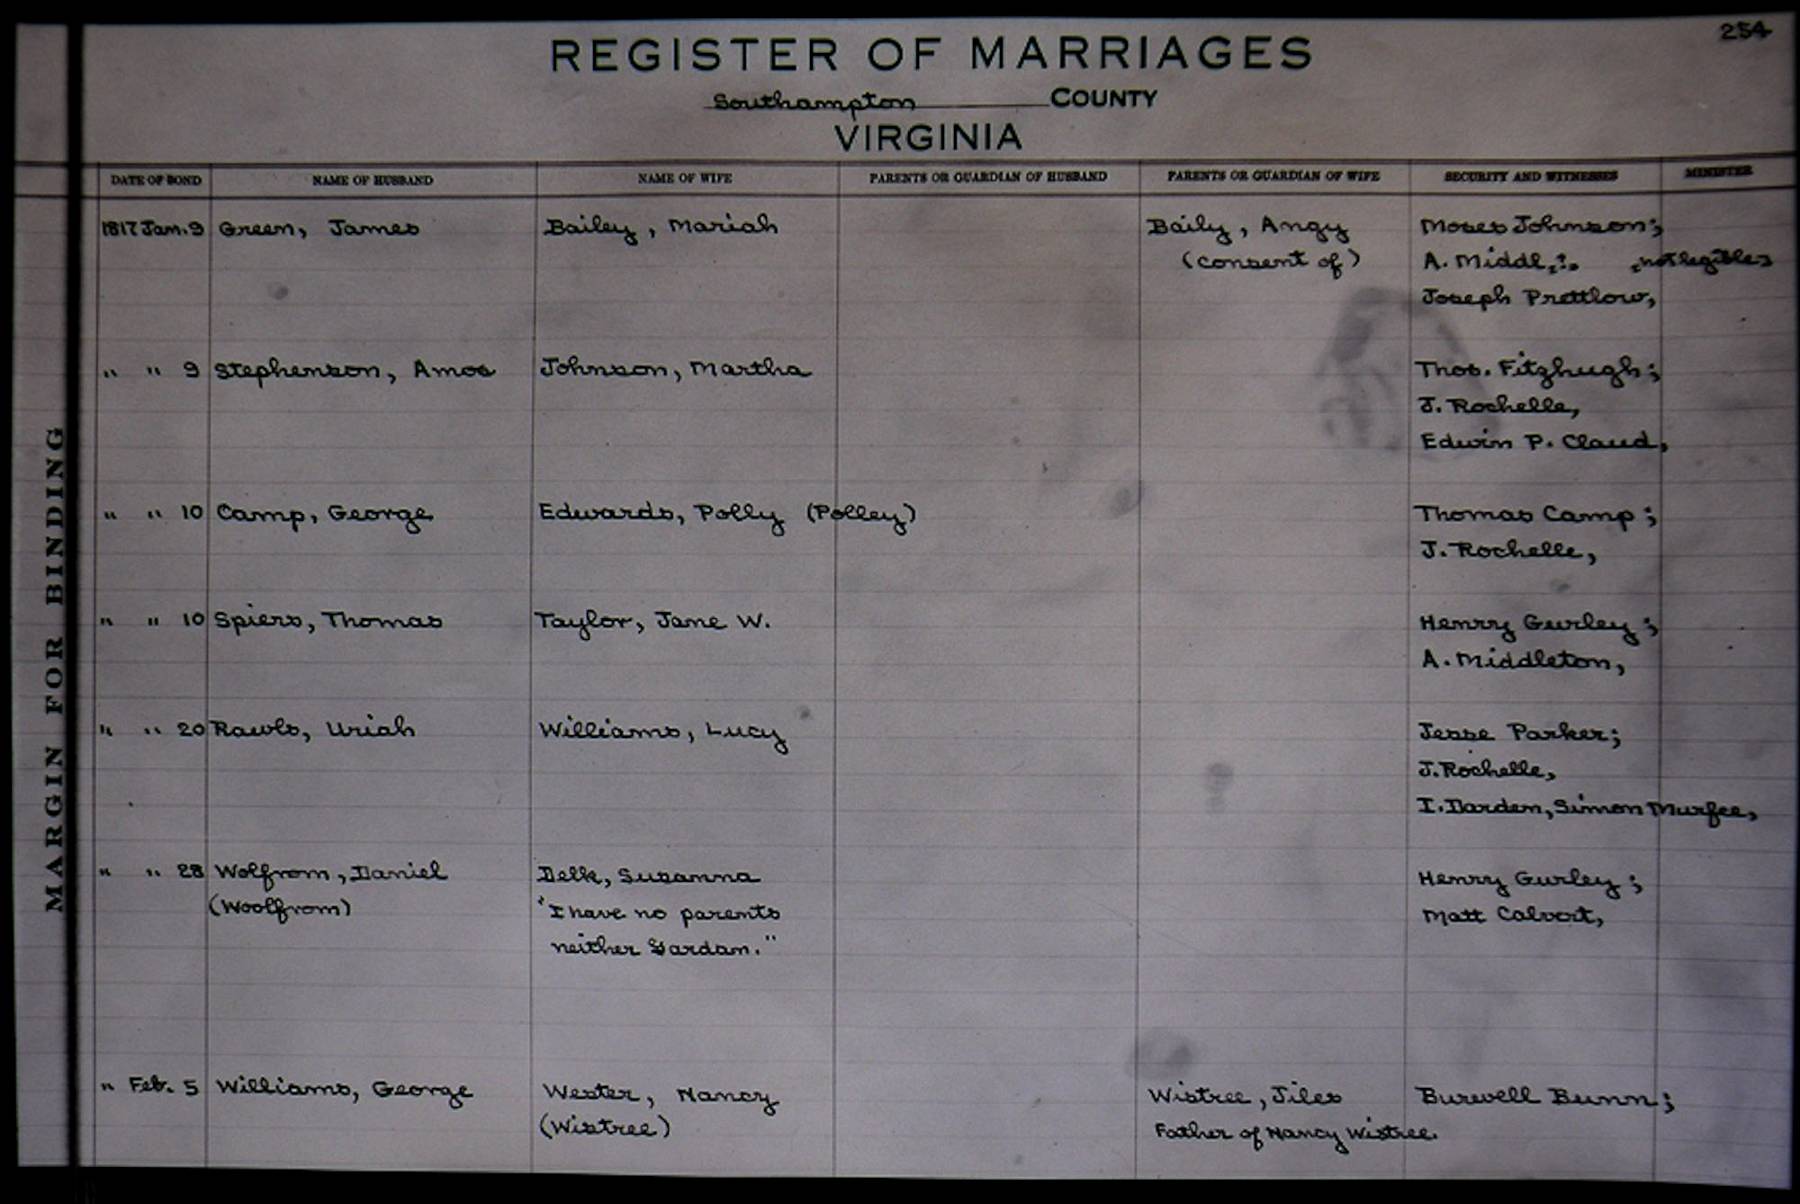 254
REGISTER OF MARRIAGES
Southampton COUNTY
VIRGINIA
DATE OF BOND NAME OF HUSBAND NAME OF WIFE PARENTS OR GUARDIAN OF HUSBAND PARENTS OR GUARDIAN OF WIFE SECURITY AND WITNESSES MINISTER
1817 Jan. 9 Green, James Bailey, Mariah Baily, Angy Moses Johnson;
(consent of) A. Middl,:. ,not legible,
Joseph Prettlow,
" " 9 Stephenson, Amos Johnson, Martha Thos. Fitzhugh;
J. Rochelle,
Edwin P. Claud,
" " 10 Camp, George Edwards, Polly (Polley) Thomas Camp;
J. Rochelle,
" " 10 Spiers, Thomas Taylor, Jane W. Henry Gurley;
A. Middleton,
" " 20 Rawls, Uriah Williams, Lucy Jesse Parker;
J. Rochelle,
I. Darden, Simon Murfee,
" " 28 Wolfrom, Daniel Delk, Susanna Henry Gurley;
(Woolfrom) "I have no parents Matt Calvert,
neither Gardan."
" Feb. 5 Williams, George Wester, Nancy Wistree, Jiles Burwell Bunn;
(Wistree) Father of Nancy Wistree.
MARGIN FOR BINDING